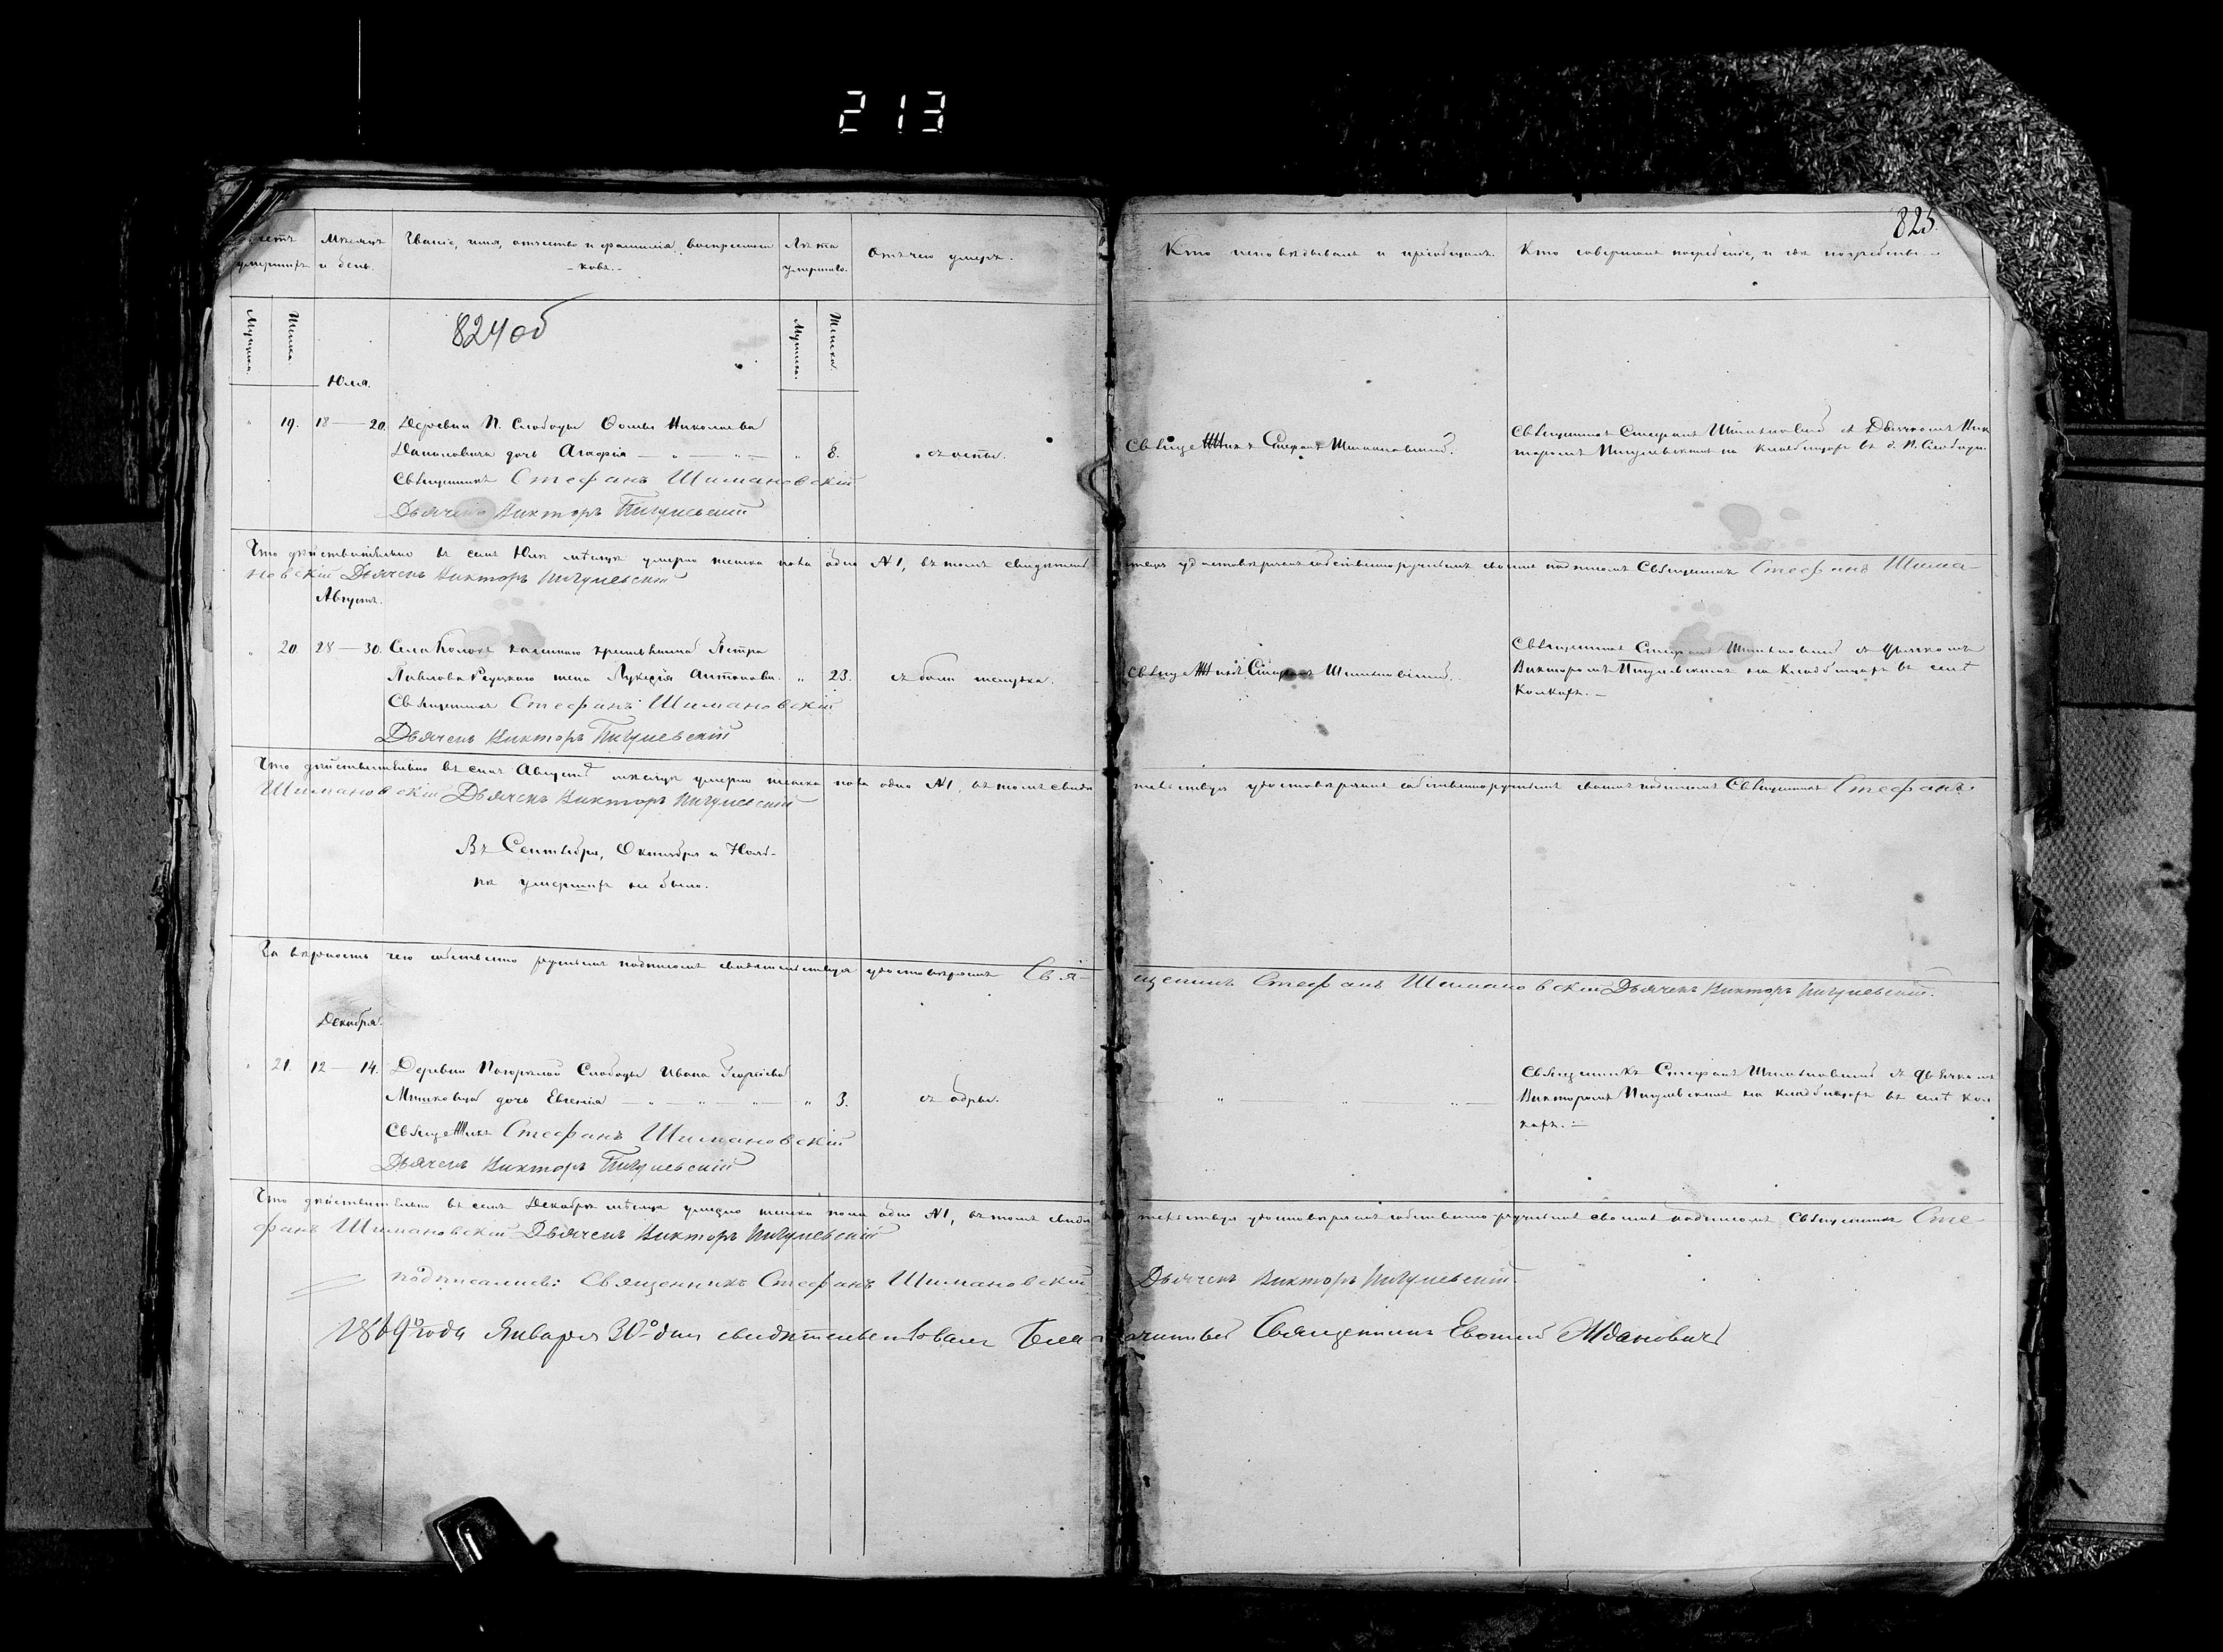 213
825.
Счетъ умершихъ
Мѣсяцъ и день.
Званіе, имя, отчество и фамилія,
Лѣта умершаго.
Отъ чего умеръ.
Кто исповѣдывалъ и пріобщалъ.
Кто совершалъ погребеніе, и гдѣ погребены.
Мужеска.
Женска.
824 об
Мужеска.
Женска.
Юля.
" 19. 18 — 20. Деревни П. Слободы Ѳомы Николаева
дочь Агафія — " — " — " 8. съ оспы.
Священникъ Стефанъ Шимановскій
Дьячекъ Викторъ Пигулевскій
Священникъ Стефанъ Шимановскій.
Священникъ Стефанъ Шимановскій съ Дьячкомъ Вик
торомъ Пигулевскимъ на кладбищѣ въ д. П. Слободи.
Что дѣйствительно въ семъ Юлѣ мѣсяцѣ умерло женска пола одно №1, въ томъ свидетель
ствуя удостовѣряемъ собственноручнымъ своимъ подписомъ Священникъ Стефанъ Шима-
новскій Дьячекъ Викторъ Пигулевскій
Августъ.
" 20. 28 — 30. Села крестьянина Петра
Павлова жена Лукерія Антонова. " 23. съ боли желудка.
Священникъ Стефанъ Шимановскій
Дьячекъ Викторъ Пигулевскій
Священникъ Стефанъ Шимановскій.
Священникъ Стефанъ Шимановскій съ дьячкомъ
Викторомъ Пигулевскимъ на кладбищѣ въ селѣ
Колкахъ. —
Что дѣйствительно въ семъ Августѣ мѣсяцѣ умерло женска пола одно №1, въ томъ свидѣ
тельствуя удостовѣряемъ собственноручнымъ своимъ подписомъ Священникъ Стефанъ
Шимановскій Дьячекъ Викторъ Пигулевскій
Въ Сентябрѣ, Октябрѣ и Нояб-
рѣ умершихъ не было.
За вѣрность чего собственно ручнымъ подписомъ свидѣтельствуя удостовѣряемъ Свя-
щенникъ Стефанъ Шимановскій Дьячекъ Викторъ Пигулевскій.
Декабря.
" 21. 12 — 14. Деревни Погорѣлой Слободы Ивана Георгіева
дочь Евгенія — " — " — " — " 3. съ одры.
Священникъ Стефанъ Шимановскій
Дьячекъ Викторъ Пигулевскій
" " " —
Священникъ Стефанъ Шимановскій съ дьячкомъ
Викторомъ Пигулевскимъ на кладбищѣ въ селѣ Кол
кахъ. —
Что дѣйствительно въ семъ Декабрѣ мѣсяцѣ умерло женска пола одно №1, въ томъ свидѣ
тельствуя удостовѣряемъ собственно-ручнымъ своимъ подписомъ, Священникъ Сте-
фанъ Шимановскій Дьячекъ Викторъ Пигулевскій
подписались: Священникъ Стефанъ Шимановскій Дьячекъ Викторъ Пигулевскій.
1869го года Января 30го дня свидѣтельствовалъ Благочинный Священникъ Евѳимій Ждановичъ